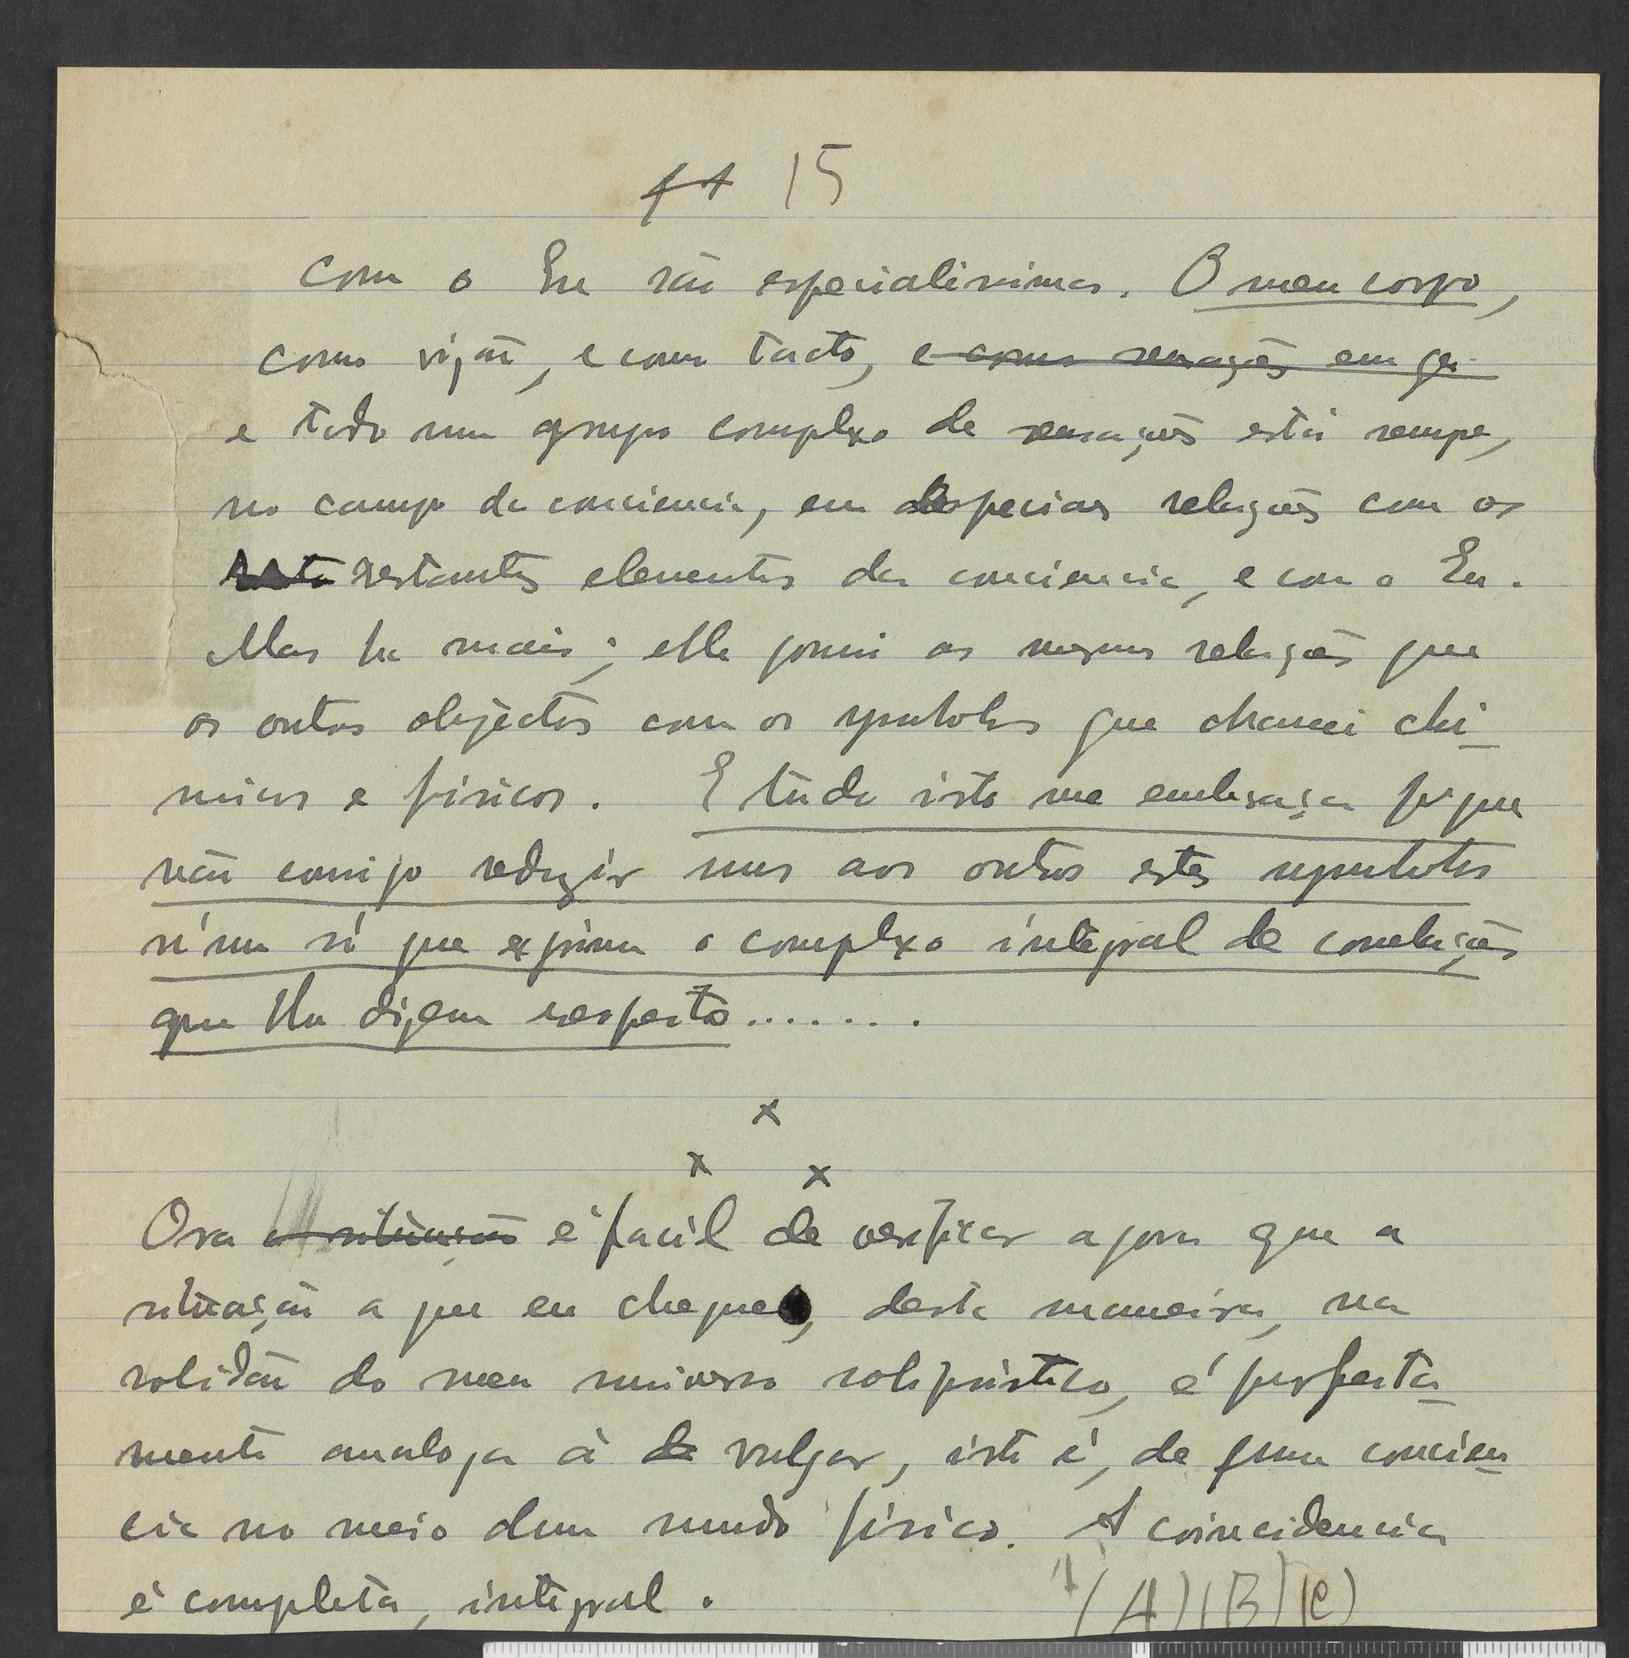 15
com o Eu são especialissimas. O meu corpo,
como visão, e como tacto, e como sensações em ge-
e todo um grupo complexo de sensações está sempre,
no campo da conciencia, em especiaes relações com os
restantes elementos da conciencia, e com o Eu.
Mas ha mais; elle possui as mesmas relações que
os outros objectos com os symbolos que chamei chi-
micos e fisicos. E tudo isto me embaraça porque
não consigo reduzir uns aos outros estes symbolos
n'um só que exprima o complexo integral de correlações
que lhe dizem respeito........
x
x x
Ora a situação é facil de verificar agora que a
situação a que eu cheguei, desta maneira, na
solidão do meu universo solipsistico, é perfeita-
mente analoga á de vulgar, isto é, de uma concien-
cia no meio dum mundo fisico. A coincidencia
é completa, integral.
(A) (B) (C)